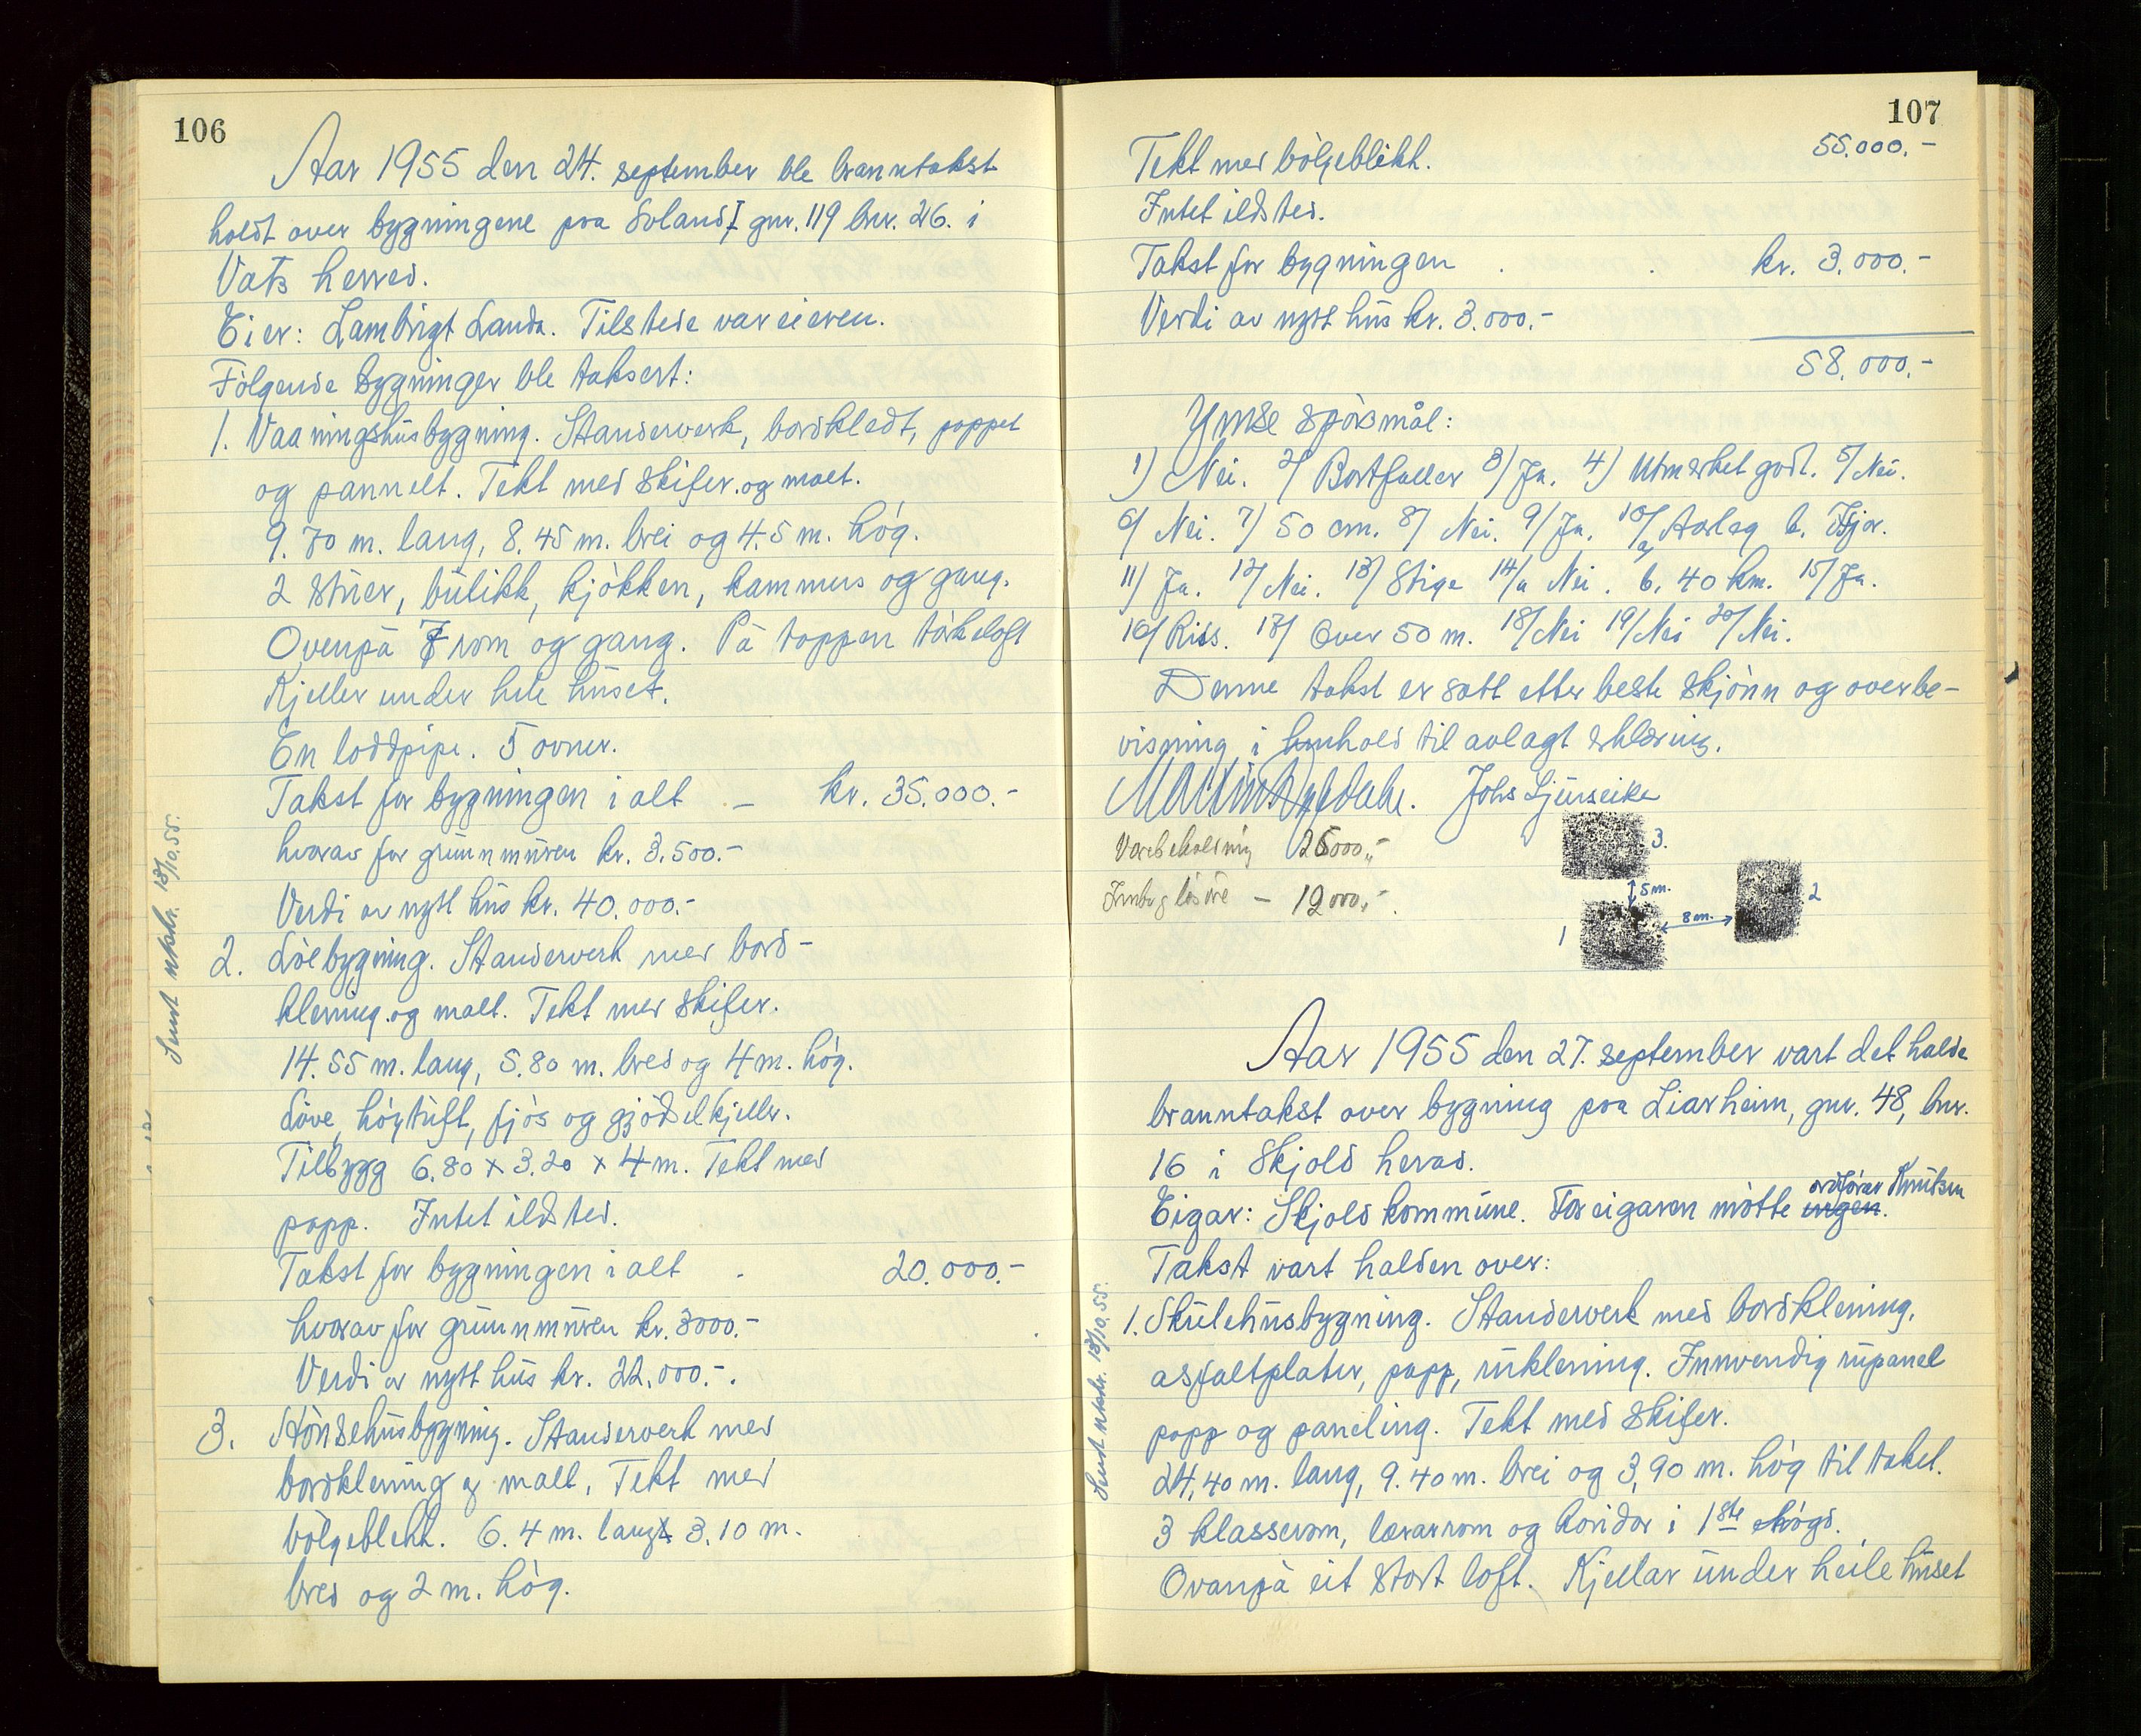 106
Aar 1955 den 24. september ble branntakst
holdt over bygningene paa Soland I gnr. 119 bnr. 26. i
Vats herred.
Eier: Lambrigt Landa. Tilstede var eieren.
Følgende bygninger ble taksert:
1. Vaaningshusbygning. Standerverk, bordkledt, pappet
og pannelt. Tekt med skifer. og malt.
9.70 m. lang, 8.45 m. brei og 4.5 m. høg.
2 stuer, butikk, kjøkken, kammers og gang.
Ovenpå 7 rom og gang. På toppen tørkeloft
Kjeller under hele huset.
En loddpipe. 5 ovner.
Takst for bygningen i alt - kr. 35.000.-
hvorav for grunnmuren kr. 3.500.-
Verdi av nytt hus kr. 40.000.-
2. Løebygning. Standerverk med bord-
kledning. og malt. Tekt med skifer.
14.55 m. lang, 5.80 m. bred og 4 m. høg.
Løve, høytuft, fjøs og gjødselkjeller.
Tilbygg 6.80 x 3.20 x 4 m. Tekt med
papp. Intet ildsted.
Takst for bygningen i alt . 20.000.-
hvorav for grunnmuren kr. 3000.-
Verdi av nytt hus kr. 22.000.-.
3. Hønsehusbygning. Standerverk med
bordkledning og malt. Tekt med
bølgeblekk. 6.4 m. lang 3.10 m.
bred og 2 m. høg.
Sendt utskr. 13/10.55.
107
55.000.-
Tekt med bølgeblikk.
Intet ildsted.
Takst for bygningen . . kr. 3.000.-
Verdi av nytt hus kr. 3.000.-
58.000.-
Ymse spørsmål:
1) Nei. 2/ Bortfaller 3/ Ja. 4) Utmerket godt. 5/ Nei.
6/ Nei. 7/ 50 cm. 8/ Nei. 9/ Ja. 10/ a, Avlag b. Fjør.
11/ Ja. 12/ Nei. 13/ Stige 14/a Nei. b. 40 km. 15/ Ja.
16/ Riss. 17/ Over 50 m. 18/ Nei 19/ Nei 20/ Nei.
Denne takst er satt etter beste skjønn og overbe-
visning i henhold til avlagt erklæring.
Johs Ljunseike
25000,-
Innbo g løsøre - 12000,-.
3.
5 m.
2
8 m.
1
Aar 1955 den 27. september vart det halde
branntakst over bygning paa Liarheim, gnr. 48, bnr.
16 i Skjold herad.
ordførar Knutsen
Eigar: Skjold kommune. For eigaren møtte ingen.
Takst vart halden over:
1. Skulehusbygning. Standerverk med bordkledning,
asfaltplater, papp, rukledning. Innvendig rupanel
papp og paneling. Tekt med skifer.
24,40 m. lang, 9.40 m. brei og 3,90 m. høg til taket.
3 klasserom, lærarrom og koridor i 1ste høgd.
Ovanpå eit stort loft. Kjellar under heile huset
Sendt utskr. 13/10.55.